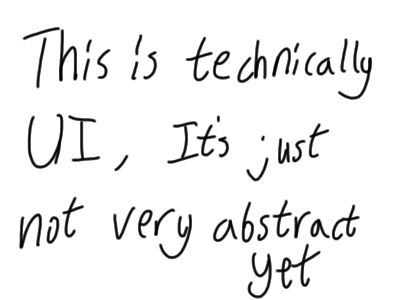 This is technically
UI, It's just
not very abstract
yet